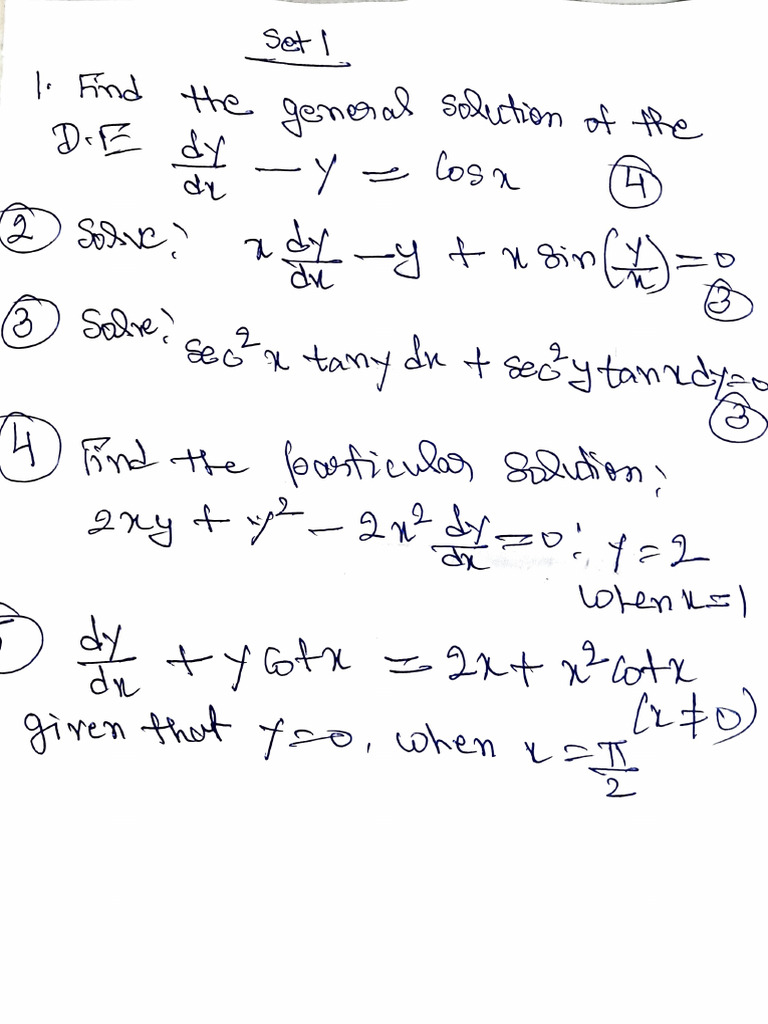 Set 1
1. Find the general solution of the
D.E dy/dx - y = cosx (4)
(2) Solve: x dy/dx - y + x sin(y/x) = 0
(3)
(3) Solve:
sec²x tany dx + sec²y tanx dy = 0
(3)
(4) Find the particular solution:
2xy + y² - 2x² dy/dx = 0 ; y = 2
when x = 1
dy/dx + y cotx = 2x + x² cotx
(x ≠ 0)
given that y = 0, when x = π/2